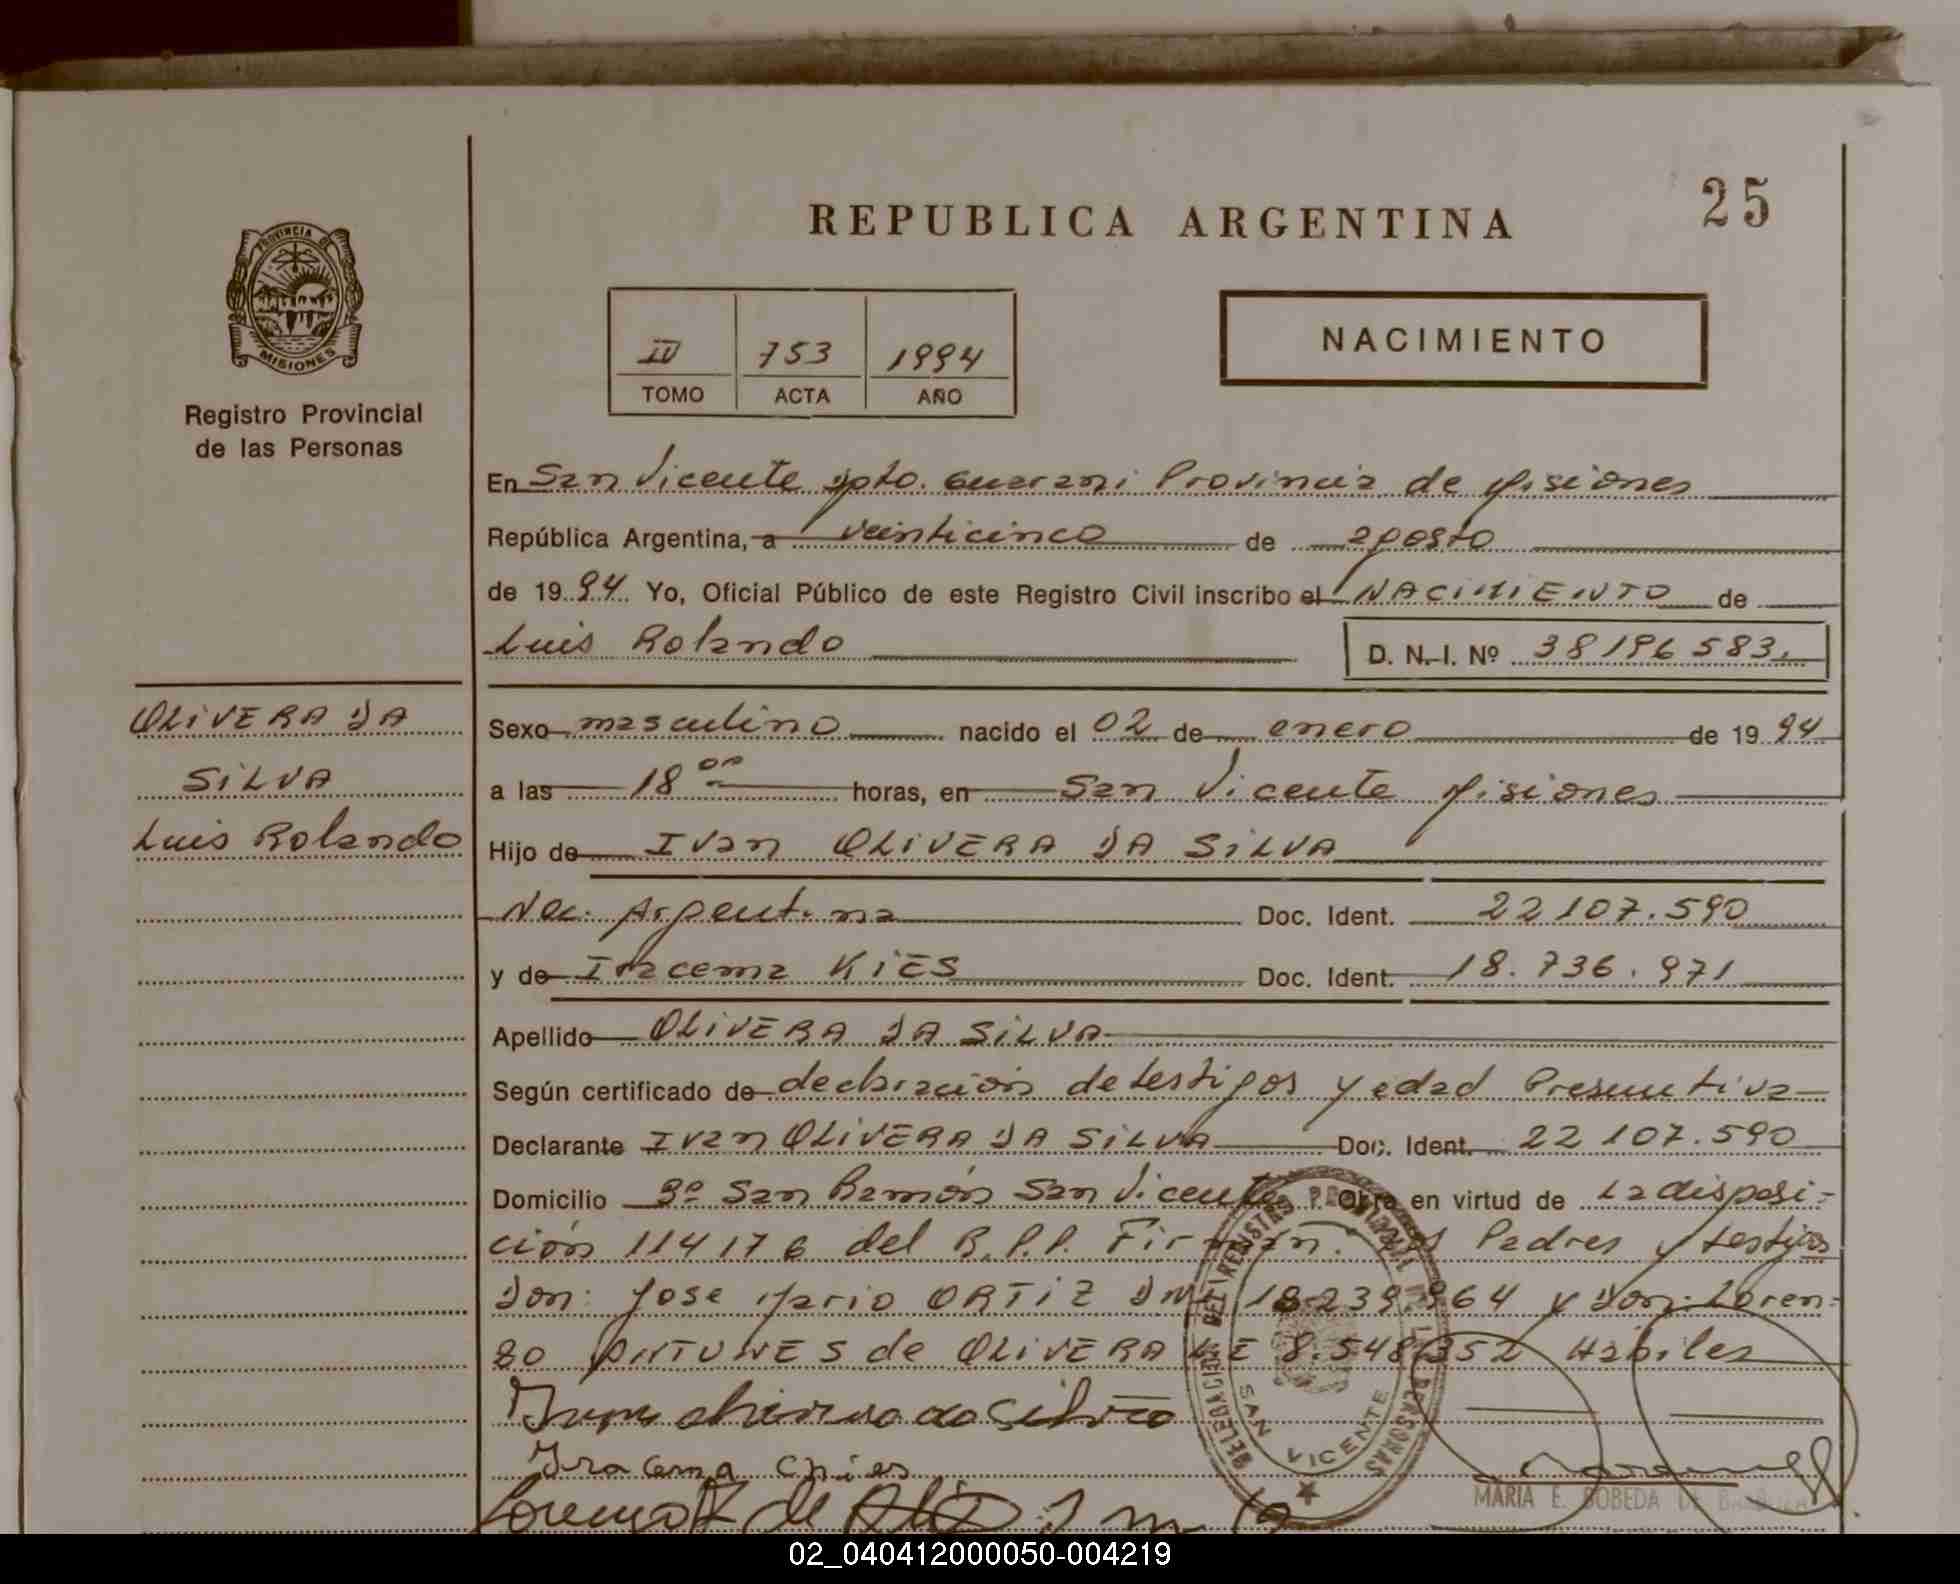 REPUBLICA ARGENTINA
25
PROVINCIA DE
MISIONES
Registro Provincial
de las Personas
IV 753 1994
TOMO ACTA AÑO
NACIMIENTO
En San Vicente Dpto. Guarani Provincia de Misiones
República Argentina, a veinticinco de agosto
de 1994 Yo, Oficial Público de este Registro Civil inscribo el NACIMIENTO de
Luis Rolando
D. N. I. Nº 38196583.
OLIVERA DA
SILVA
Luis Rolando
Sexo masculino nacido el 02 de enero de 1994
a las 18 00 horas, en San Vicente Misiones
Hijo de Ivan OLIVERA DA SILVA
Nac. Argentina Doc. Ident. 22107.590
y de Iracema KIES Doc. Ident. 18.736.971
Apellido OLIVERA DA SILVA
Según certificado de declaración de testigos y edad Presuntiva
Declarante Ivan OLIVERA DA SILVA Doc. Ident. 22107.590
Domicilio Bº San Ramón San Vicente Obra en virtud de La disposi-
ción 114176 del R.P.P. Firman. Los Padres y testigos
Don: Jose Mario ORTIZ DNI 18.239.964 y Don: Loren-
zo ANTUNES de OLIVERA LE 8.548352 Habiles
DELEGACION DEL REGISTRO PROVINCIAL DE LAS PERSONAS
SAN VICENTE
Iracema
MARIA E. BOBEDA DE
02_040412000050-004219